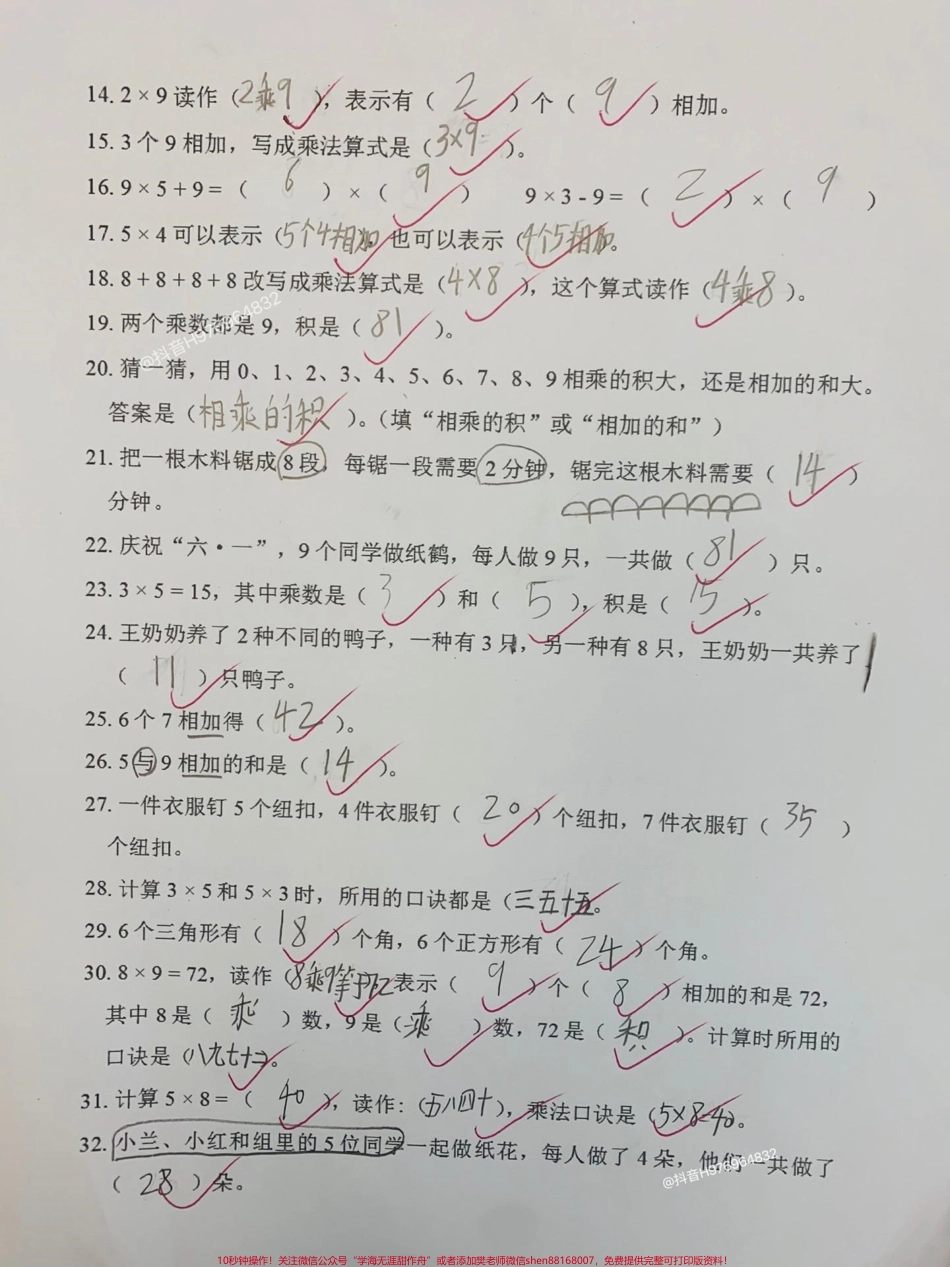 14. 2 × 9 读作（2乘9），表示有（ 2 ）个（ 9 ）相加。
15. 3 个 9 相加，写成乘法算式是（3×9）。
16. 9 × 5 + 9 = （ 6 ）×（ 9 ） 9 × 3 - 9 = （ 2 ）×（ 9 ）
17. 5 × 4 可以表示（5个4相加 也可以表示（4个5相加。
18. 8 + 8 + 8 + 8 改写成乘法算式是（4×8），这个算式读作（4乘8）。
@抖音H976964832
19. 两个乘数都是 9，积是（ 81 ）。
20. 猜一猜，用 0、1、2、3、4、5、6、7、8、9 相乘的积大，还是相加的和大。
答案是（相乘的积）。（填“相乘的积”或“相加的和”）
21. 把一根木料锯成 8 段，每锯一段需要 2 分钟，锯完这根木料需要（ 14 ）
分钟。
22. 庆祝“六·一”，9 个同学做纸鹤，每人做 9 只，一共做（ 81 ）只。
23. 3 × 5 = 15，其中乘数是（ 3 ）和（ 5 ），积是（ 15 ）。
24. 王奶奶养了 2 种不同的鸭子，一种有 3 只，另一种有 8 只，王奶奶一共养了
（ 11 ）只鸭子。
25. 6 个 7 相加得（ 42 ）。
26. 5 与 9 相加的和是（ 14 ）。
27. 一件衣服钉 5 个纽扣，4 件衣服钉（ 20 ）个纽扣，7 件衣服钉（ 35 ）
个纽扣。
28. 计算 3 × 5 和 5 × 3 时，所用的口诀都是（三五十五。
29. 6 个三角形有（ 18 ）个角，6 个正方形有（ 24 ）个角。
30. 8 × 9 = 72，读作（8乘9等于72 表示（ 9 ）个（ 8 ）相加的和是 72，
其中 8 是（ 乘 ）数，9 是（乘 ）数，72 是（ 积 ）。计算时所用的
口诀是（八九七十二）。
31. 计算 5 × 8 = （ 40 ），读作：（五八四十），乘法口诀是（5×8=40）。
32. 小兰、小红和组里的 5 位同学一起做纸花，每人做了 4 朵，他们一共做了
（ 28 ）朵。
@抖音H976964832
10秒钟操作！关注微信公众号“学海无涯甜作舟”或者添加樊老师微信shen88168007，免费提供完整可打印版资料！